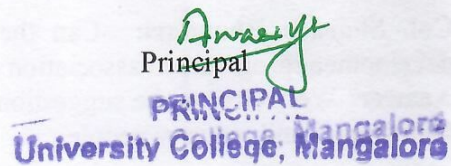 Principal
PRINCIPAL
University College, Mangalore